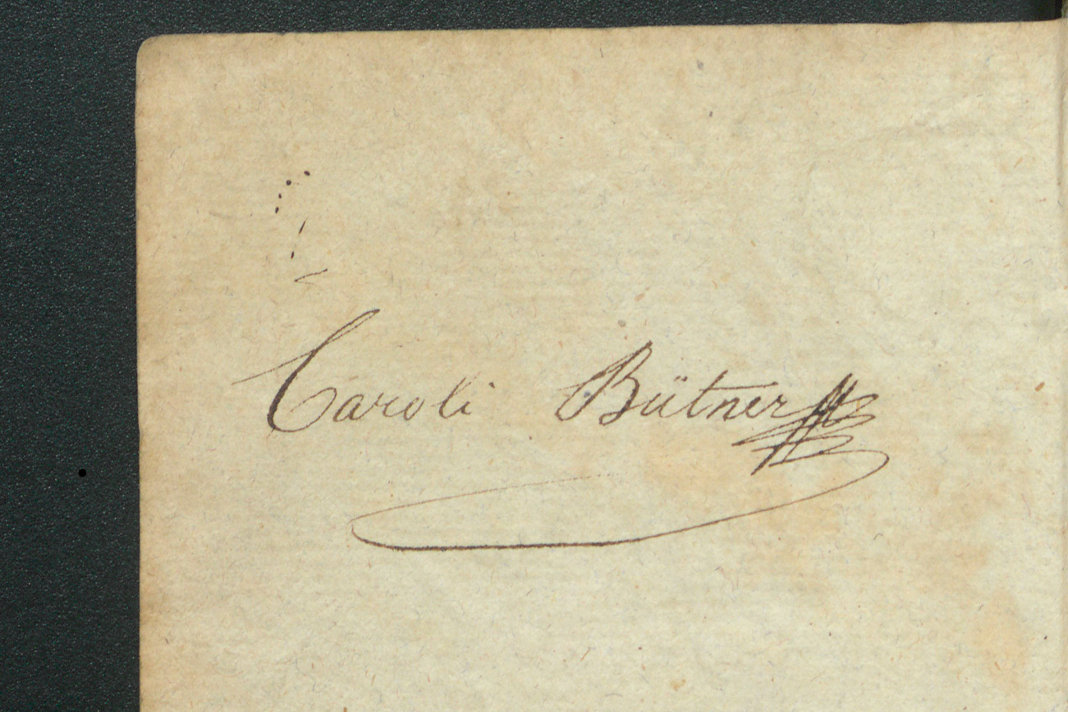 Caroli Bütner